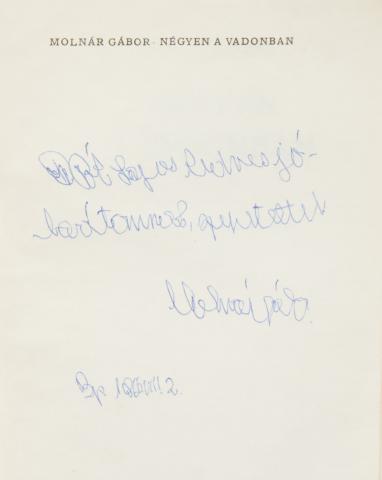 MOLNÁR GÁBOR · NÉGYEN A VADONBAN
Lajos kedves jó-
barátomnak, szeretettel
Molnár Gábor
Bp.